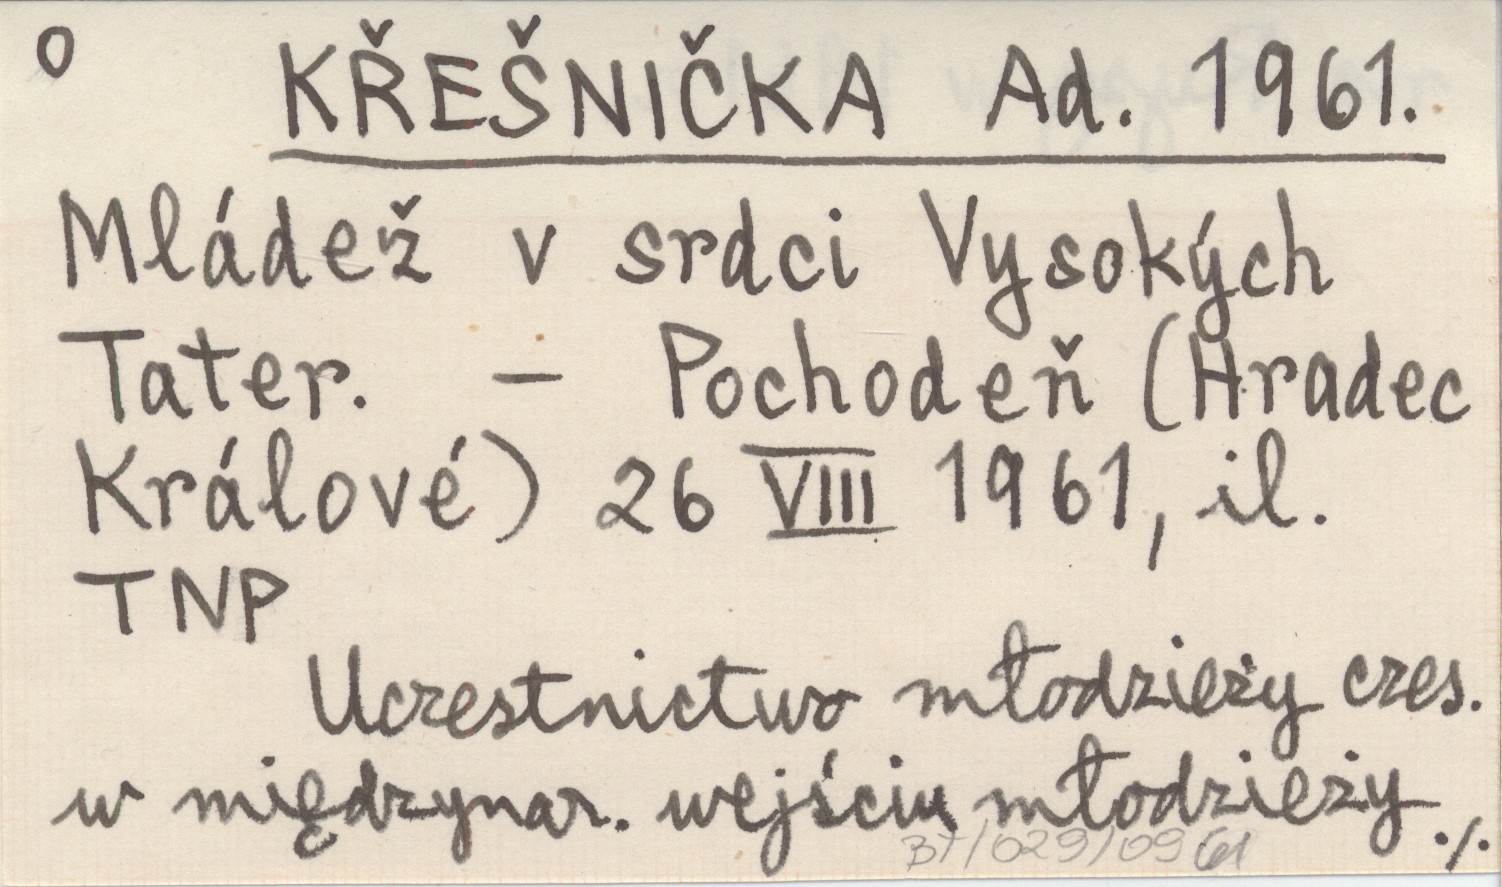 o KŘEŠNIČKA Ad. 1961.
Mládež v srdci Vysokých
Tater. – Pochodeň (Hradec
Králové) 26 VIII 1961, il.
TNP
Uczestnictwo młodzieży czes.
w międzynar. wejściu młodzieży ./.
BT/029/09 61